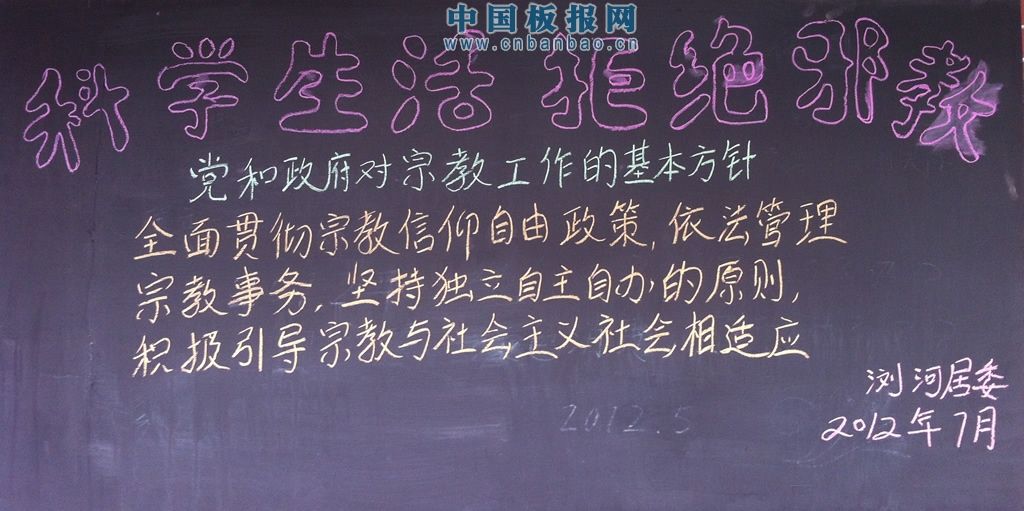 中国板报网
www.cnbanbao.cn
科学生活 拒绝邪教
党和政府对宗教工作的基本方针
全面贯彻宗教信仰自由政策,依法管理
宗教事务,坚持独立自主自办的原则,
积极引导宗教与社会主义社会相适应
浏河居委
2012年7月
2012.5